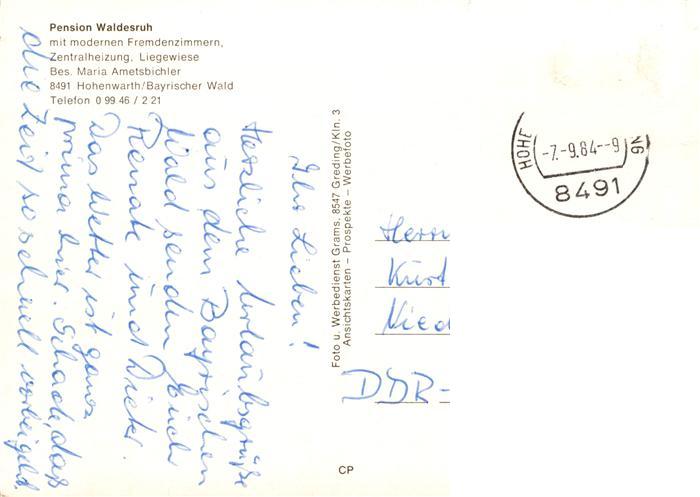 Pension Waldesruh
mit modernen Fremdenzimmern,
Zentralheizung, Liegewiese
Bes. Maria Ametsbichler
8491 Hohenwarth/Bayrischer Wald
Telefon 0 99 46 / 2 21
Ihr Lieben!
Herzliche Urlaubsgrüße
aus dem Bayrischen
Wald senden Euch
Renate und Dieter.
Das Wetter ist ganz
prima hier. Schade, daß
die Zeit so schnell vorbeigeht.
Foto u. Werbedienst Grams, 8547 Greding/Kln. 3
Ansichtskarten – Prospekte – Werbefoto
HOHE
-7.-9.84--9
8491
Herrn
Kurt
Nied
DDR-
CP